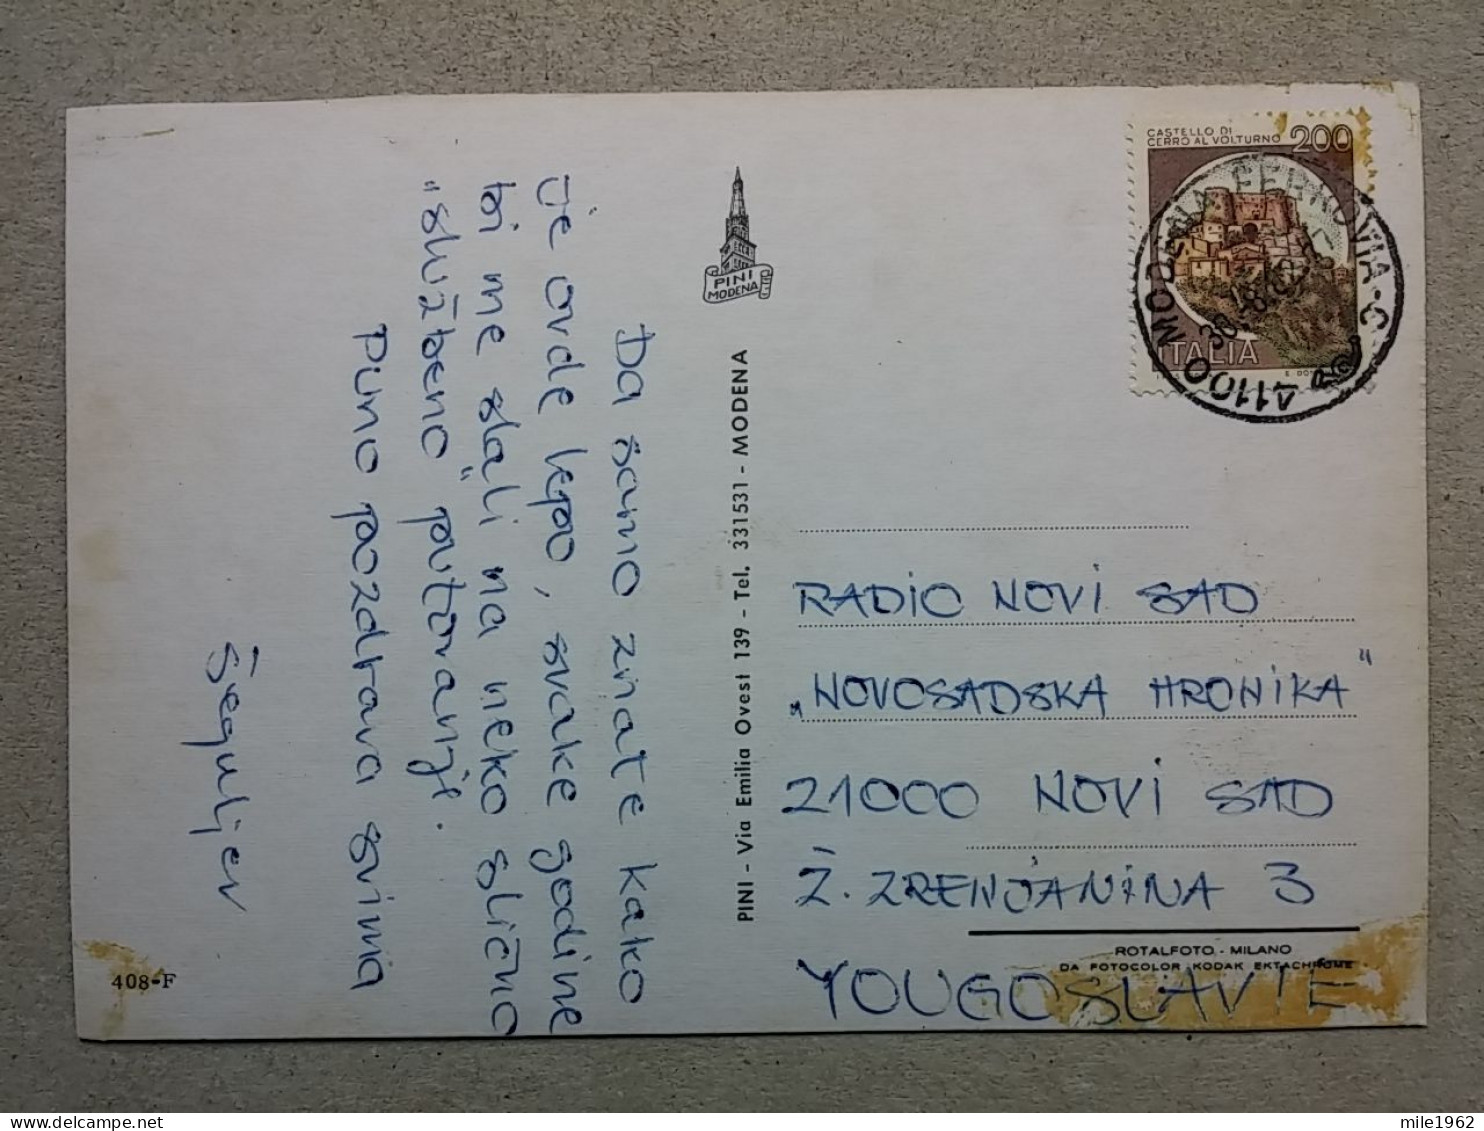 Da samo znate kako
je ovde lepo, svake godine
bi me slali na neko slično
"službeno" putovanje.
Puno pozdrava svima
Šeguljev
408-F
PINI
MODENA
PINI - Via Emilia Ovest 139 - Tel. 331531 - MODENA
CASTELLO DI
CERRO AL VOLTURNO 200
ITALIA
41100 MODENA FERROVIA · C
RADIO NOVI SAD
„NOVOSADSKA HRONIKA"
21000 NOVI SAD
Ž. ZRENJANINA 3
ROTALFOTO - MILANO
DA FOTOCOLOR KODAK EKTACHROME
YOUGOSLAVIE
mile1962